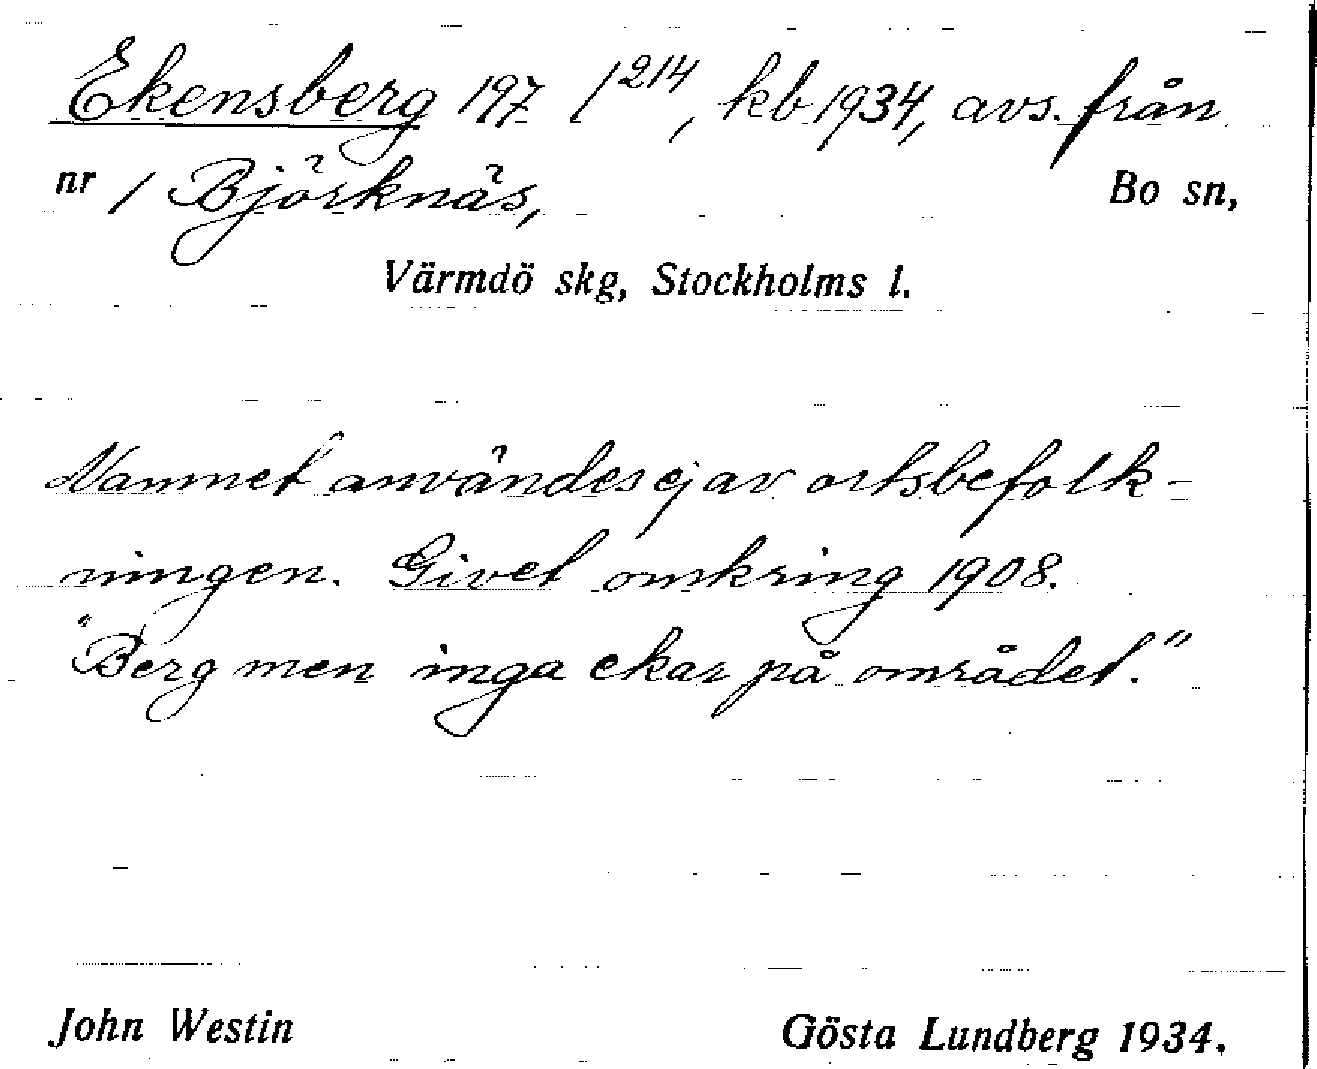 Ekensberg 197 1²¹⁴, kb 1934, avs. från
nr 1 Björknäs, Bo sn,
Värmdö skg, Stockholms l.
Namnet användes ej av ortsbefolk-
ningen. Givet omkring 1908.
"Berg men inga ekar på området."
John Westin Gösta Lundberg 1934.